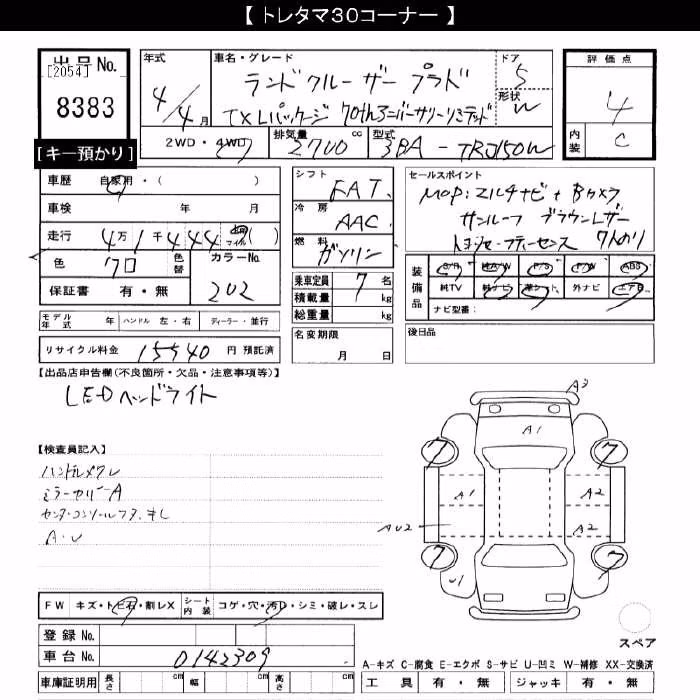 【 トレタマ30コーナー 】
出品No.
[2054]
8383
[キー預かり]
年式
4/4月
車名・グレード
ランドクルーザー プラド
TXLパッケージ 70thアニバーサリーリミテッド
ドア
5
形状
W
評価点
4
内装
C
2WD・4WD
排気量 2700 cc
型式 3BA-TRJ150W
車歴 自家用・( )
車検 年 月
走行 4万1千444 km マイル ( )
色 クロ 色替
カラーNo. 202
保証書 有・無
シフト
FAT
冷房
AAC
燃料
ガソリン
乗車定員 7 名
積載量 kg
総重量 kg
セールスポイント
MOP:マルチナビ+Bカメラ
サンルーフ ブラウンレザー
トヨタセーフティセンス 7人のり
装備品
S/R
P/S
P/W
ABS
純TV
純ナビ
革シート
外ナビ
エアB
ナビ型番:
モデル年式 年
ハンドル 左・右
ディーラー・並行
名変期限
月 日
後日品
リサイクル料金 15540 円 預託済
【出品店申告欄(不良箇所・欠品・注意事項等)】
LEDヘッドライト
【検査員記入】
ハンドルスレ
ミラーカバーA
センターコンソールフタ キレ
A・U
A3
A1
7
7
A1
A2
AU2
A2
7
7
U1
スペア
FW キズ・トビ石・割レX
シート内装 コゲ・穴・汚レ・シミ・破レ・スレ
登録No.
車台No. 0142309
車庫証明用 長さ cm 幅 cm 高さ cm
A-キズ C-腐食 E-エクボ S-サビ U-凹ミ W-補修 XX-交換済
工具 有・無 ジャッキ 有・無